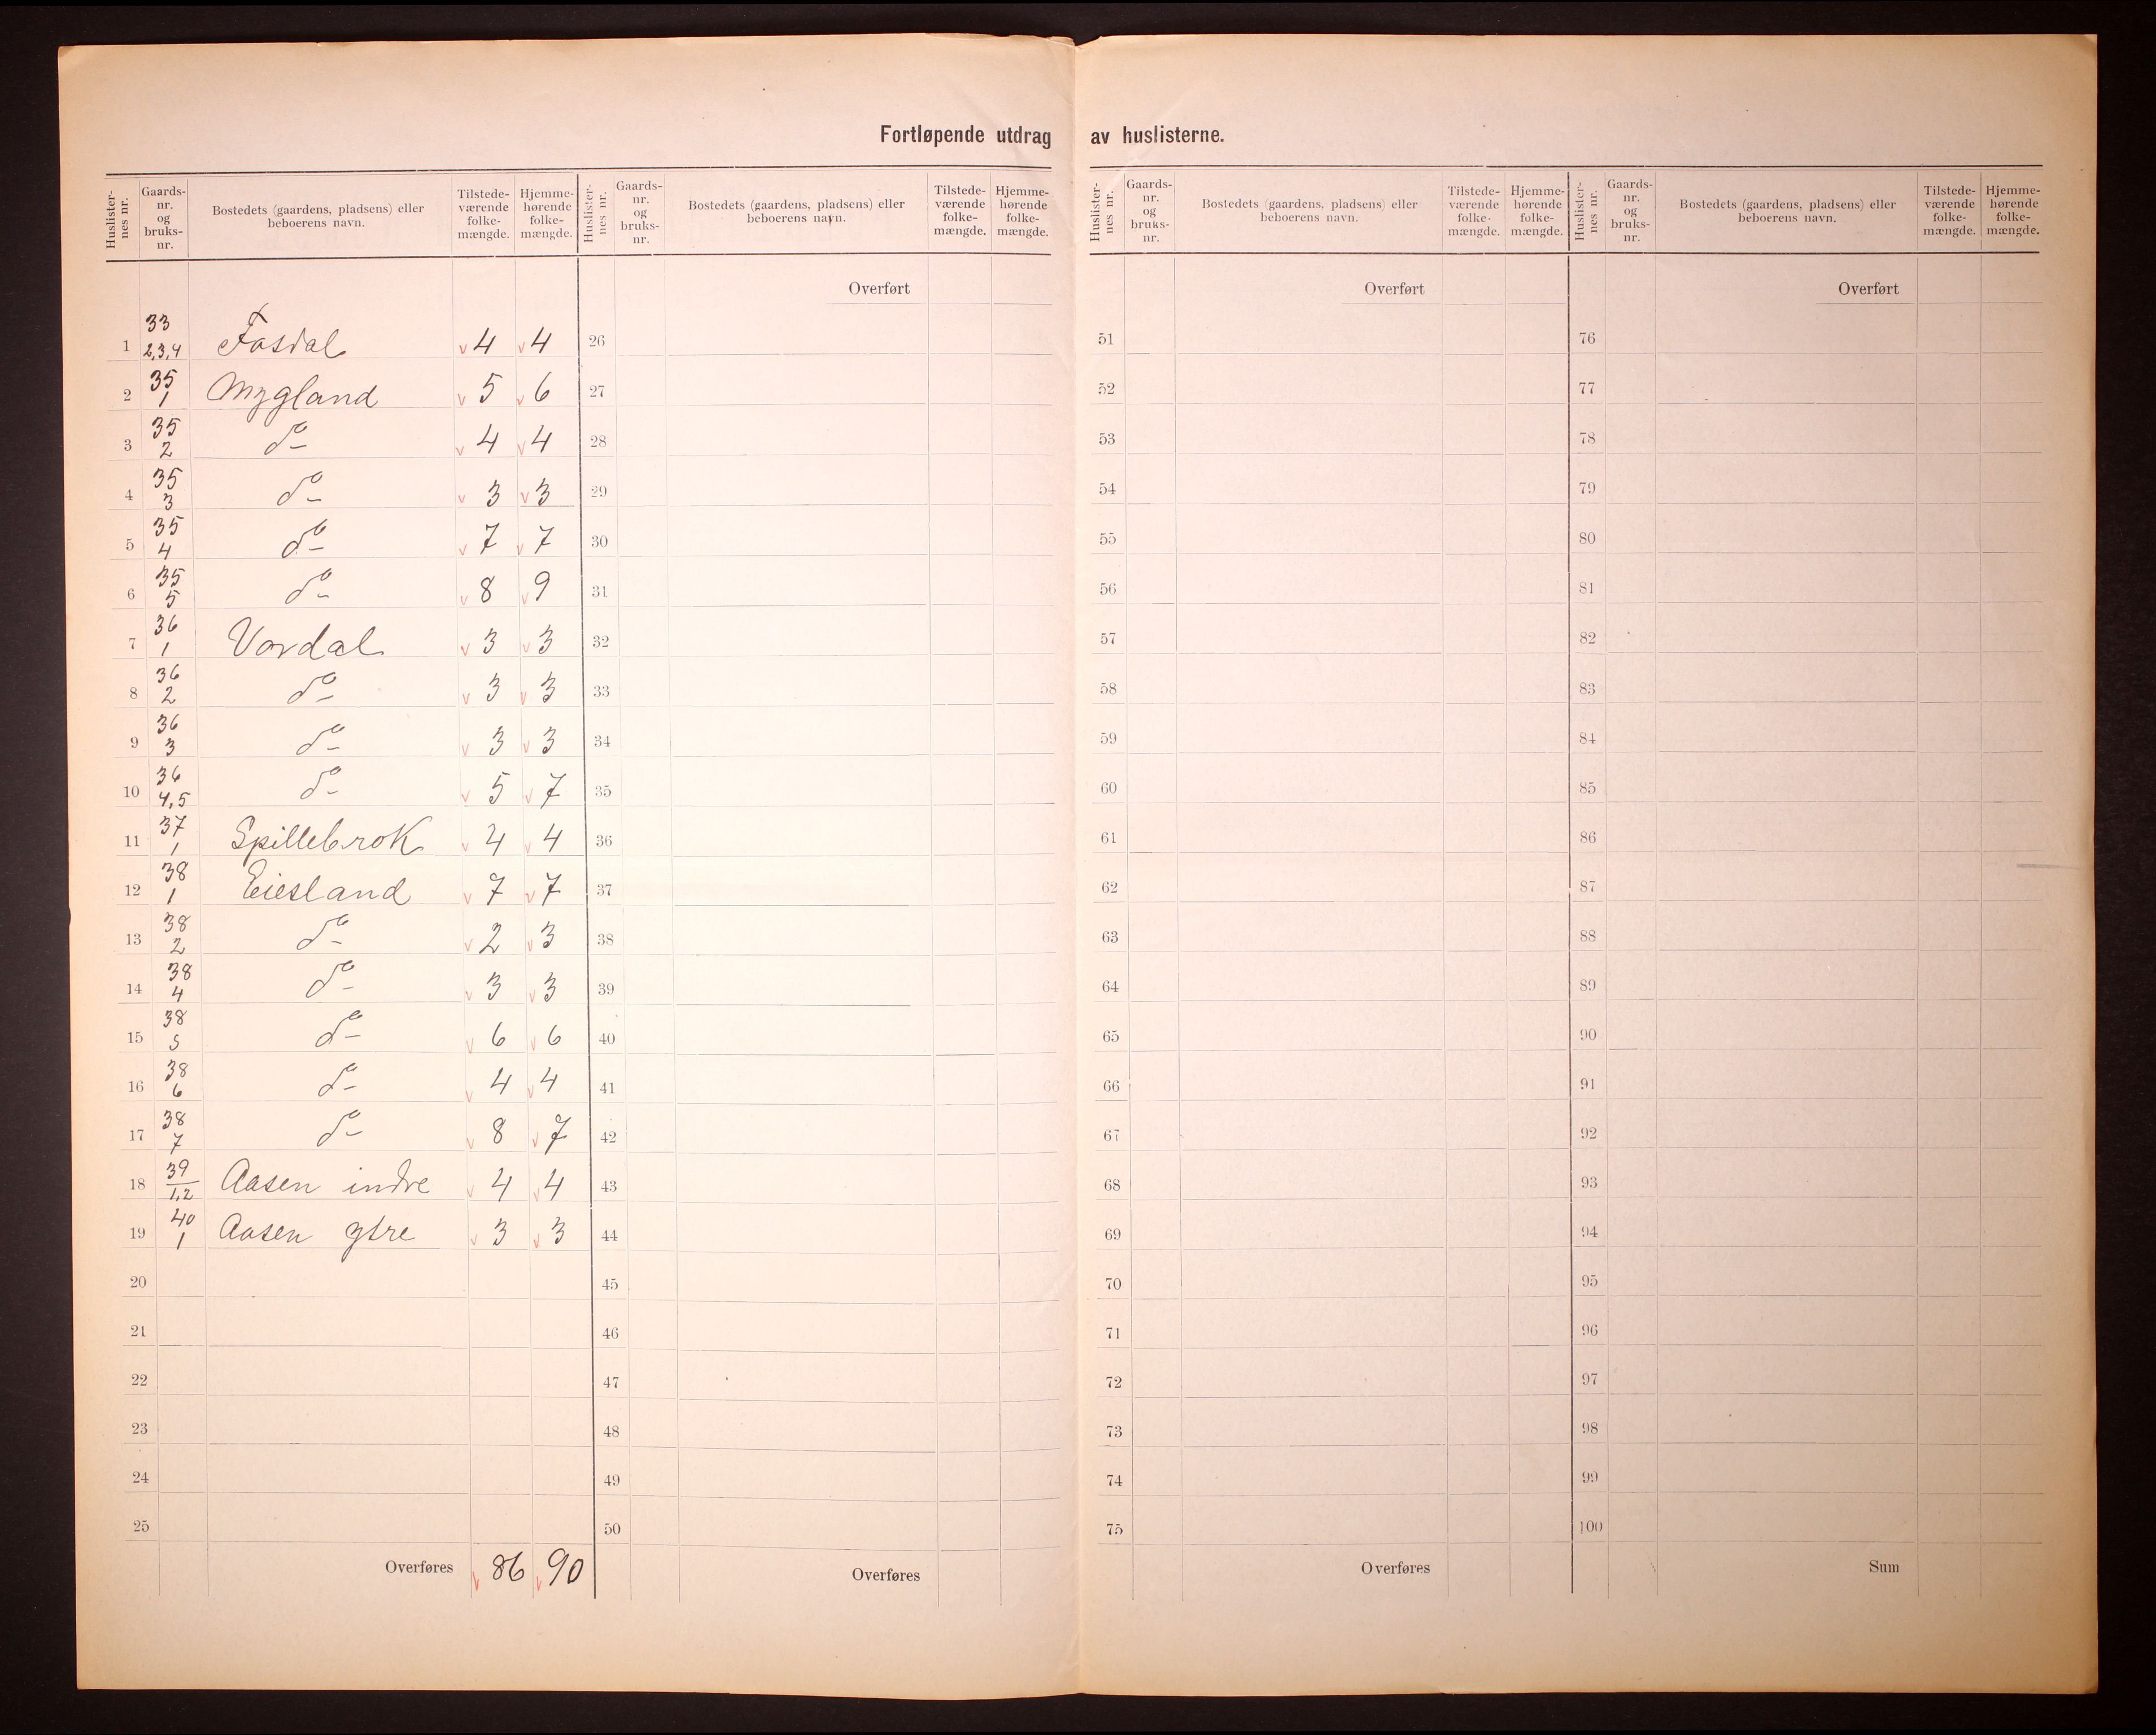 Fortløpende utdrag av huslisterne.
Huslisternes nr. | Gaards-nr. og bruks-nr. | Bostedets (gaardens, pladsens) eller beboerens navn. | Tilstede-værende folke-mængde. | Hjemme-hørende folke-mængde.
1 | 33 2,3,4 | Fosdal | 4 | 4
2 | 35 1 | Mygland | 5 | 6
3 | 35 2 | do | 4 | 4
4 | 35 3 | do | 3 | 3
5 | 35 4 | do | 7 | 7
6 | 35 5 | do | 8 | 9
7 | 36 1 | Vordal | 3 | 3
8 | 36 2 | do | 3 | 3
9 | 36 3 | do | 3 | 3
10 | 36 4,5 | do | 5 | 7
11 | 37 1 | Spillebrok | 4 | 4
12 | 38 1 | Eiesland | 7 | 7
13 | 38 2 | do | 2 | 3
14 | 38 4 | do | 3 | 3
15 | 38 5 | do | 6 | 6
16 | 38 6 | do | 4 | 4
17 | 38 7 | do | 8 | 7
18 | 39 1,2 | Aasen indre | 4 | 4
19 | 40 1 | Aasen ytre | 3 | 3
20
21
22
23
24
25
Overføres | 86 | 90
Huslisternes nr. | Gaards-nr. og bruks-nr. | Bostedets (gaardens, pladsens) eller beboerens navn. | Tilstede-værende folke-mængde. | Hjemme-hørende folke-mængde.
Overført
26
27
28
29
30
31
32
33
34
35
36
37
38
39
40
41
42
43
44
45
46
47
48
49
50
Overføres
Huslisternes nr. | Gaards-nr. og bruks-nr. | Bostedets (gaardens, pladsens) eller beboerens navn. | Tilstede-værende folke-mængde. | Hjemme-hørende folke-mængde.
Overført
51
52
53
54
55
56
57
58
59
60
61
62
63
64
65
66
67
68
69
70
71
72
73
74
75
Overføres
Huslisternes nr. | Gaards-nr. og bruks-nr. | Bostedets (gaardens, pladsens) eller beboerens navn. | Tilstede-værende folke-mængde. | Hjemme-hørende folke-mængde.
Overført
76
77
78
79
80
81
82
83
84
85
86
87
88
89
90
91
92
93
94
95
96
97
98
99
100
Sum